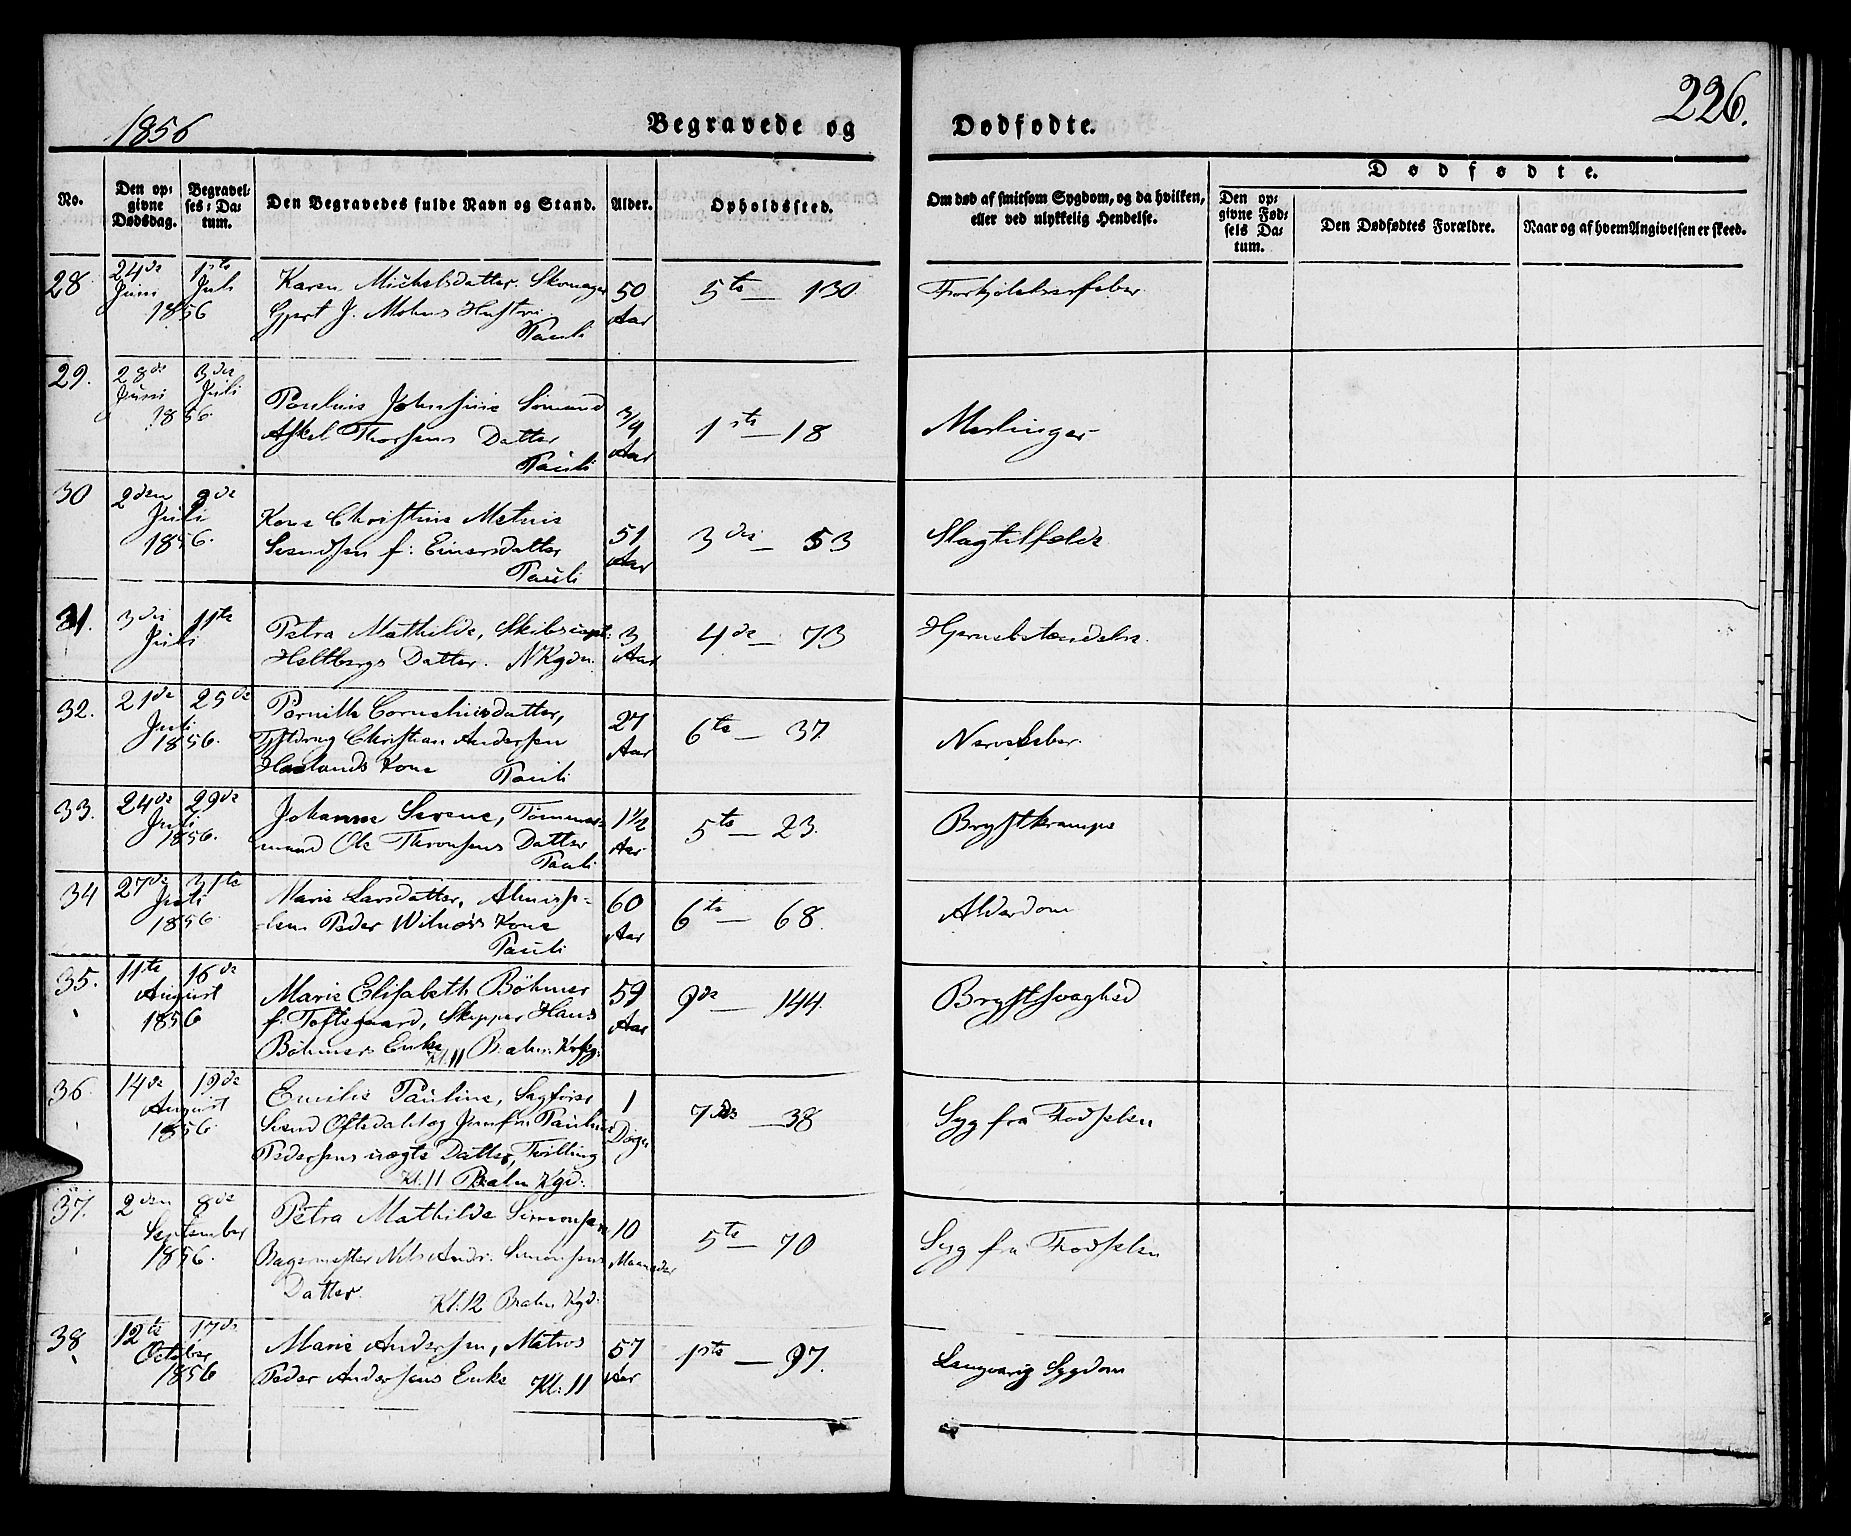 1856
Begravede og Dødfødte.
226.
No.
Den op-
givne
Dødsdag.
Begravel-
ses-Da-
tum.
Den Begravedes fulde Navn og Stand.
Alder.
Opholdssted.
Om død af smitsom Sygdom, og da hvilken,
eller ved ulykkelig Hendelse.
Dødfødte.
Den op-
givne Fød-
sels Da-
tum.
Den Dødfødtes Forældre.
Naar og af hvem Angivelsen er skeed.
28 24de 1ste Karen Michelsdatter. Skomager 50 5te — 130. Forkjølelsesfeber
Juni Juli Gjert J. Hustru Aar
1856 Pauli
29. 28de 3die Johnsine Sømand 3/4 1ste — 18 Meslinger
Juni Juli Askel Thorsens Datter Aar
1856 Pauli
30 2den Kone Christine 51 3die — 53 Slagtilfælde
Juli Svendsen f: Einersdatter Aar
1856. Pauli
31. 3die 11te Petra Mathilde, Skibscapt: 3 4de — 73 Hjernebetændelse
Juli Heltbergs Datter. Aar
32. 21de 25de Pernille Corneliusdatter, 27 6te — 37 Nervefeber.
Juli Christian Andersen Aar
1856. Haalands Kone Pauli
33. 24de 29de Johanne Serene, Tømmer- 1½ 5te — 23. Brystkrampe
Juli mand Ole Thronsens Datter Aar
1856. Pauli
34 27de 31te Marie Larsdatter, Almisse- 60 6te — 68. Alderdom
Juli lem Peder Kone Aar
1856 Pauli
35. 11te 16de Marie Elisabeth Böhmer 59 9de — 144. Brystsvaghed
August f. Toftegaard, Skipper Hans Aar
1856 Böhmers Enke Kl. 11
36. 14de 19de Emilie Pauline, Sagfører 1 7de — 38 Syg fra Fødselen
August Svend Oftedal og Jomfru Pauline
1856. Pedersens uægte Datter, Tvilling
Kl. 11 Kgd.
37. 2den 8de Petra Mathilde Simonsen 10 5te — 70 Syg fra Fødselen
September Bagermester Nils Andr. Simonsens Maaneder
1856. Datter.
Kl: 12 Kgd.
38 12te 17de Marie Andersen, Matros 57 1ste — 97. Langvarig Sygdom
October Peder Andersens Enke Kl: 11 Aar
1856